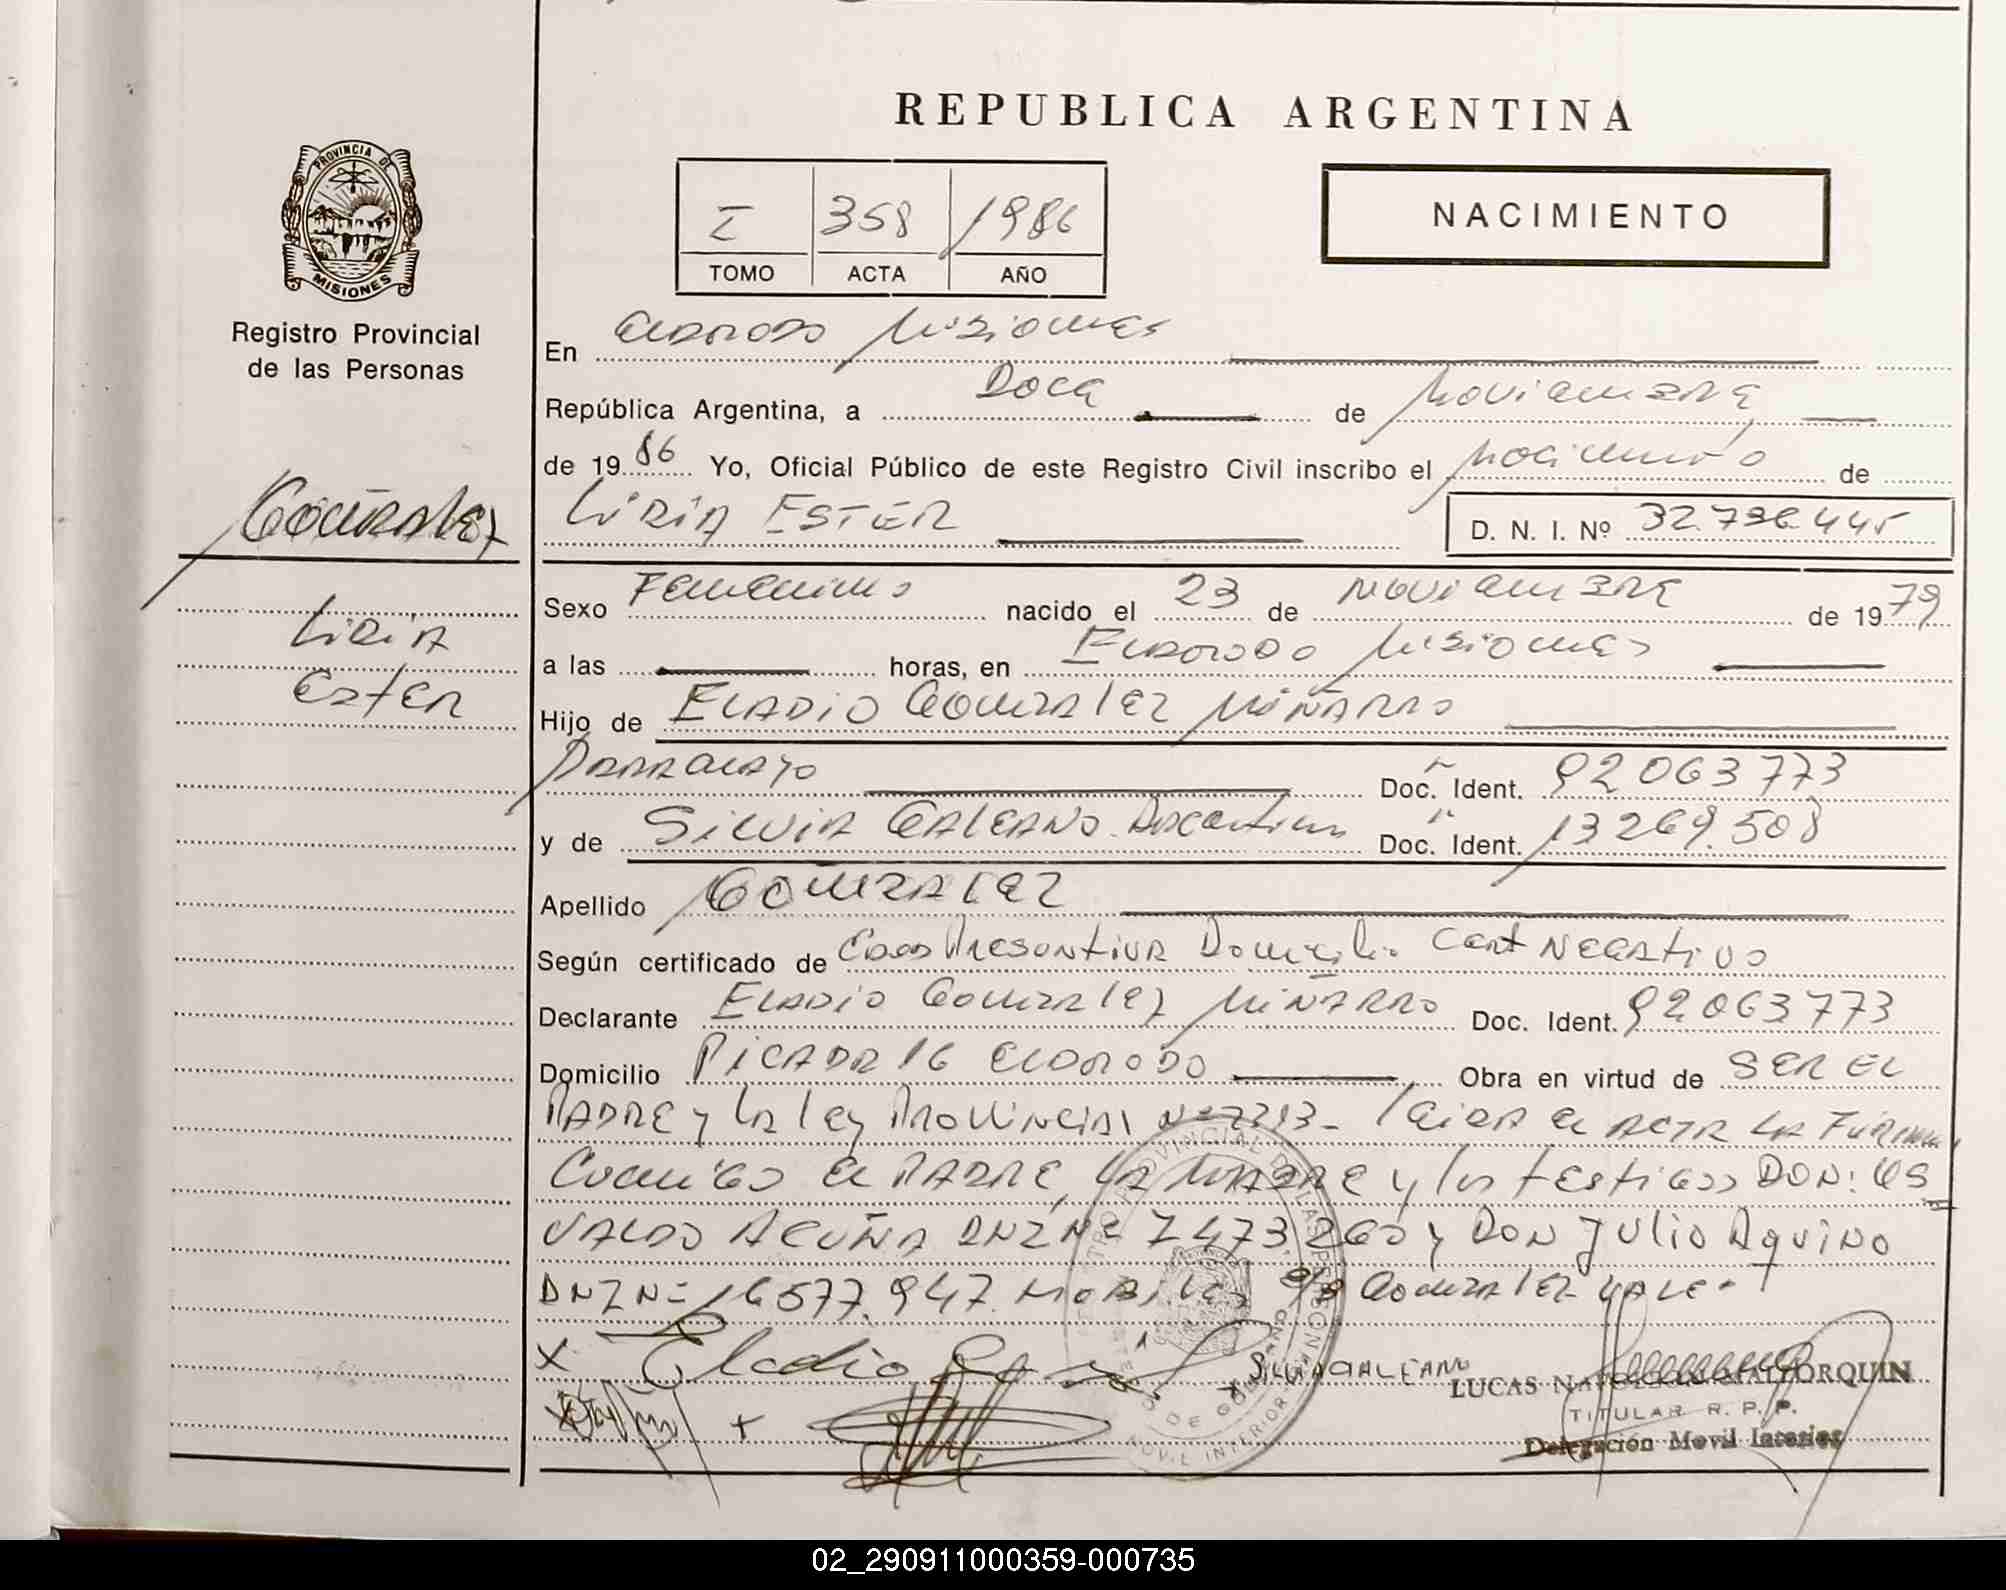 REPUBLICA ARGENTINA
PROVINCIA DE
MISIONES
Registro Provincial
de las Personas
I 358 1986
TOMO ACTA AÑO
NACIMIENTO
En Eldorado Misiones
República Argentina, a Doce de Noviembre
de 1986 Yo, Oficial Público de este Registro Civil inscribo el nacimiento de
LIRIA ESTER D. N. I. Nº 32.796.445
GONZALEZ
Liria
Ester
Sexo Femenino nacido el 23 de Noviembre de 1979
a las horas, en Eldorado Misiones
Hijo de ELADIO GONZALEZ MIÑARRO
Paraguayo Doc. Ident. 92063773
y de SILVIA GALEANO Argentina Doc. Ident. 13269.508
Apellido GONZALEZ
Según certificado de Presuntiva Domicilio Cert Negativo
Declarante ELADIO GONZALEZ MIÑARRO Doc. Ident. 92063773
Domicilio PICADA 16 Eldorado Obra en virtud de SER EL
PADRE y la ley Provincial Nº Leida el ACTA LA Firman
Conmigo el PADRE, LA MADRE y los testigos DON: OS
VALDO ACUÑA DNI Nº 7473.260 y DON Julio Aquino
DNI Nº 16577.947. GONZALEZ VALE
X Eladio Go
X SILVIA GALEANO
LUCAS NAPOLEON MALLORQUIN
TITULAR R. P. P.
Delegación Movil Interior
X +
REGISTRO PROVINCIAL DE LAS PERSONAS
MOVIL INTERIOR
02_290911000359-000735